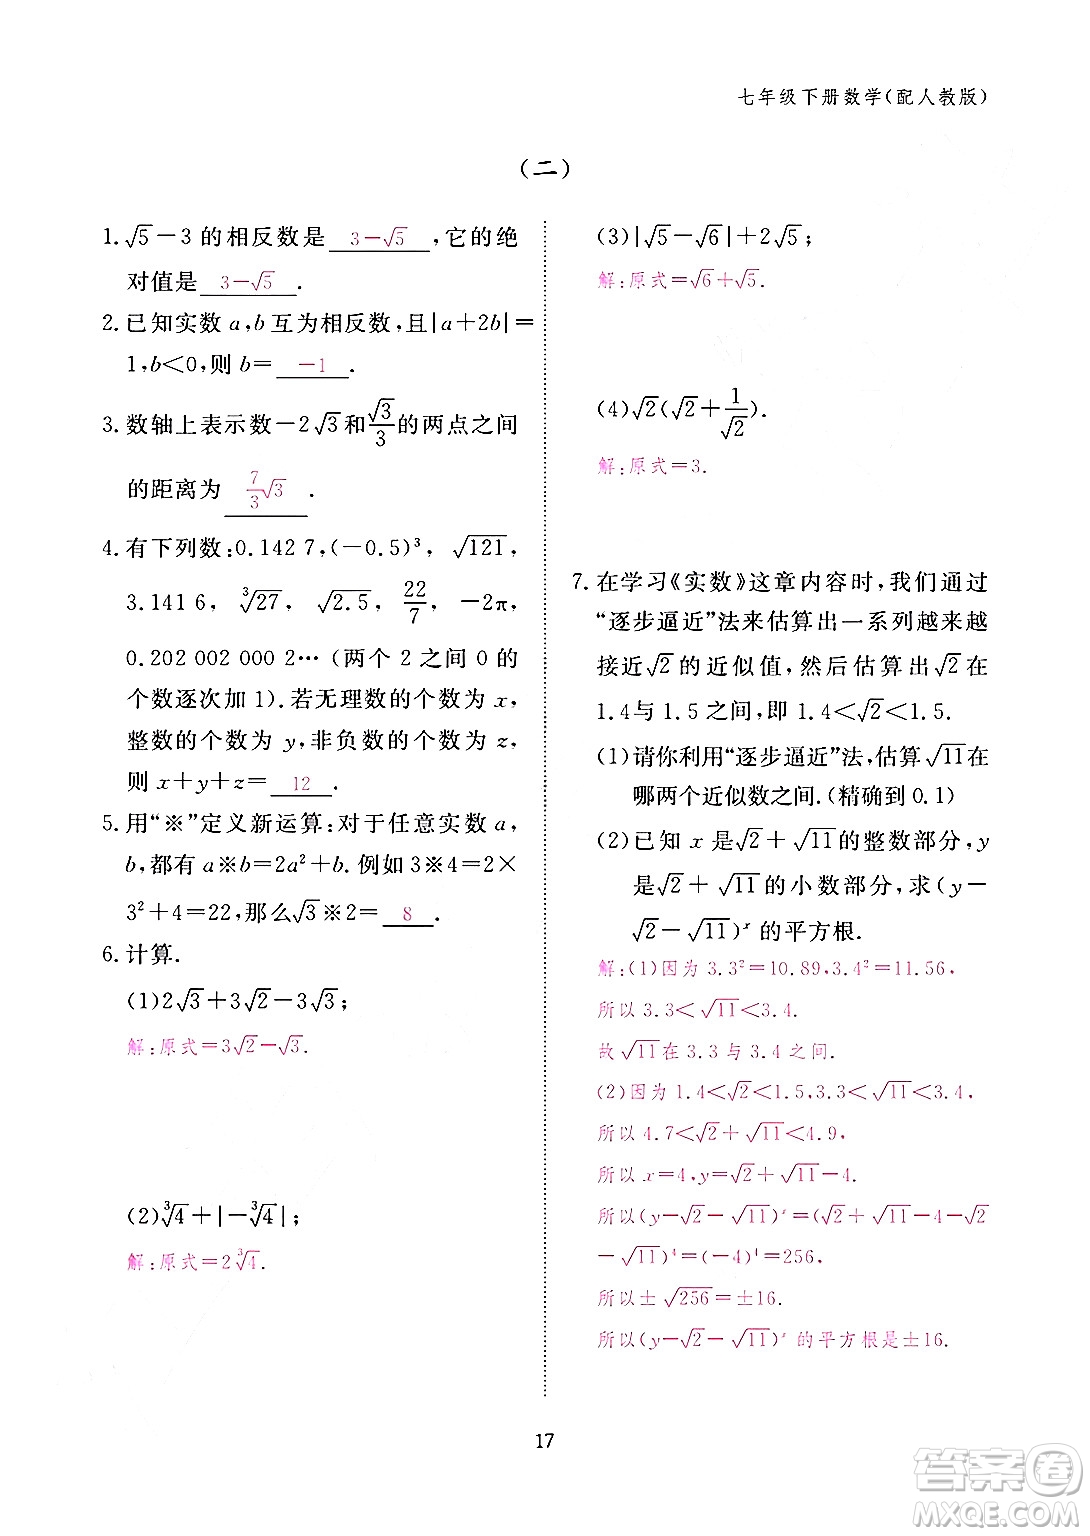 七年级下册数学(配人教版)
(二)
1.√5－3 的相反数是 3－√5 ,它的绝
对值是 3－√5 .
2.已知实数 a,b 互为相反数,且|a＋2b|＝
1,b＜0,则 b＝ －1 .
3.数轴上表示数－2√3和√3/3的两点之间
的距离为 7/3√3 .
4.有下列数:0.142 7,(－0.5)³, √121,
3.141 6, ³√27, √2.5, 22/7, －2π,
0.202 002 000 2… (两个 2 之间 0 的
个数逐次加 1).若无理数的个数为 x,
整数的个数为 y,非负数的个数为 z,
则 x＋y＋z＝ 12 .
5.用“※”定义新运算:对于任意实数 a,
b,都有 a※b＝2a²＋b.例如 3※4＝2×
3²＋4＝22,那么√3※2＝ 8 .
6.计算.
(1)2√3＋3√2－3√3;
解:原式＝3√2－√3.
(2)³√4＋|－³√4|;
解:原式＝2³√4.
(3)|√5－√6|＋2√5;
解:原式＝√6＋√5.
(4)√2(√2＋1/√2).
解:原式＝3.
7.在学习《实数》这章内容时,我们通过
“逐步逼近”法来估算出一系列越来越
接近√2的近似值,然后估算出√2在
1.4与 1.5 之间,即 1.4＜√2＜1.5.
(1)请你利用“逐步逼近”法,估算√11在
哪两个近似数之间.(精确到 0.1)
(2)已知 x 是√2＋√11的整数部分,y
是√2＋√11的小数部分,求(y－
√2－√11)ˣ 的平方根.
解:(1)因为 3.3²＝10.89,3.4²＝11.56,
所以 3.3＜√11＜3.4.
故√11在 3.3 与 3.4 之间.
(2)因为 1.4＜√2＜1.5,3.3＜√11＜3.4,
所以 4.7＜√2＋√11＜4.9,
所以 x＝4,y＝√2＋√11－4.
所以(y－√2－√11)ˣ＝(√2＋√11－4－√2
－√11)⁴＝(－4)⁴＝256,
所以±√256＝±16.
所以(y－√2－√11)ˣ 的平方根是±16.
17
答案卷
MXQE.COM